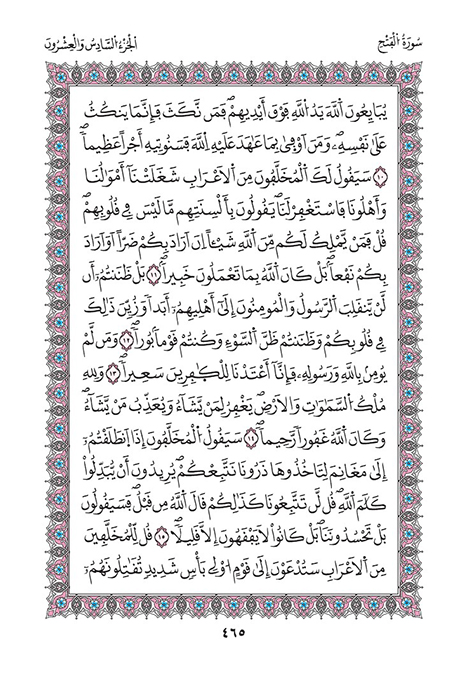 سُورَةُ الْفَتْحِ
الْجُزْءُ السَّادِسُ وَالْعِشْرُونَ
يُبَايِعُونَ اَ۬للَّهَ يَدُ اُ۬للَّهِ فَوْقَ أَيْدِيهِمْۖ فَمَن نَّكَثَ فَإِنَّمَا يَنكُثُ
عَلَىٰ نَفْسِهِۦۖ وَمَنَ اَوْفَىٰ بِمَا عَٰهَدَ عَلَيْهِ اِ۬للَّهَ فَسَنُوتِيهِ أَجْراً عَظِيماًۖ
١٠ سَيَقُولُ لَكَ اَ۬لْمُخَلَّفُونَ مِنَ اَ۬لَاعْرَابِ شَغَلَتْنَآ أَمْوَٰلُنَا
وَأَهْلُونَا فَاسْتَغْفِرْ لَنَاۖ يَقُولُونَ بِأَلْسِنَتِهِم مَّا لَيْسَ فِے قُلُوبِهِمْۖ
قُلْ فَمَنْ يَّمْلِكُ لَكُم مِّنَ اَ۬للَّهِ شَيْـٔاً اِنَ اَرَادَ بِكُمْ ضَرّاً اَوَ اَرَادَ
بِكُمْ نَفْعاَۢۖ بَلْ كَانَ اَ۬للَّهُ بِمَا تَعْمَلُونَ خَبِيراَۢۖ ١١ بَلْ ظَنَنتُمُۥٓ أَن
لَّنْ يَّنقَلِبَ اَ۬لرَّسُولُ وَالْمُومِنُونَ إِلَىٰٓ أَهْلِيهِمُۥٓ أَبَداً وَزُيِّنَ ذَٰلِكَ
فِے قُلُوبِكُمْ وَظَنَنتُمْ ظَنَّ اَ۬لسَّوْءِ وَكُنتُمْ قَوْماَۢ بُوراًۖ ١٢ وَمَن لَّمْ
يُومِنۢ بِاللَّهِ وَرَسُولِهِۦ فَإِنَّآ أَعْتَدْنَا لِلْكٰ۪فِرِينَ سَعِيراًۖ ١٣ وَلِلهِ
مُلْكُ اُ۬لسَّمَٰوَٰتِ وَالَارْضِۖ يَغْفِرُ لِمَنْ يَّشَآءُ وَيُعَذِّبُ مَنْ يَّشَآءُۖ
وَكَانَ اَ۬للَّهُ غَفُوراً رَّحِيماًۖ ١٤ سَيَقُولُ اُ۬لْمُخَلَّفُونَ إِذَا اَ۪نطَلَقْتُمُۥٓ
إِلَىٰ مَغَانِمَ لِتَاخُذُوهَا ذَرُونَا نَتَّبِعْكُمْۖ يُرِيدُونَ أَنْ يُّبَدِّلُواْ
كَلَٰمَ اَ۬للَّهِۖ قُل لَّن تَتَّبِعُونَا كَذَٰلِكُمْ قَالَ اَ۬للَّهُ مِن قَبْلُۖ فَسَيَقُولُونَ
بَلْ تَحْسُدُونَنَاۖ بَلْ كَانُواْ لَا يَفْقَهُونَ إِلَّا قَلِيلاًۖ ١٥ قُل لِّلْمُخَلَّفِينَ
مِنَ اَ۬لَاعْرَابِ سَتُدْعَوْنَ إِلَىٰ قَوْمٍ ا۟وْلِے بَأْسٍ شَدِيدٍ تُقَٰتِلُونَهُمُۥٓ
٤٦٥